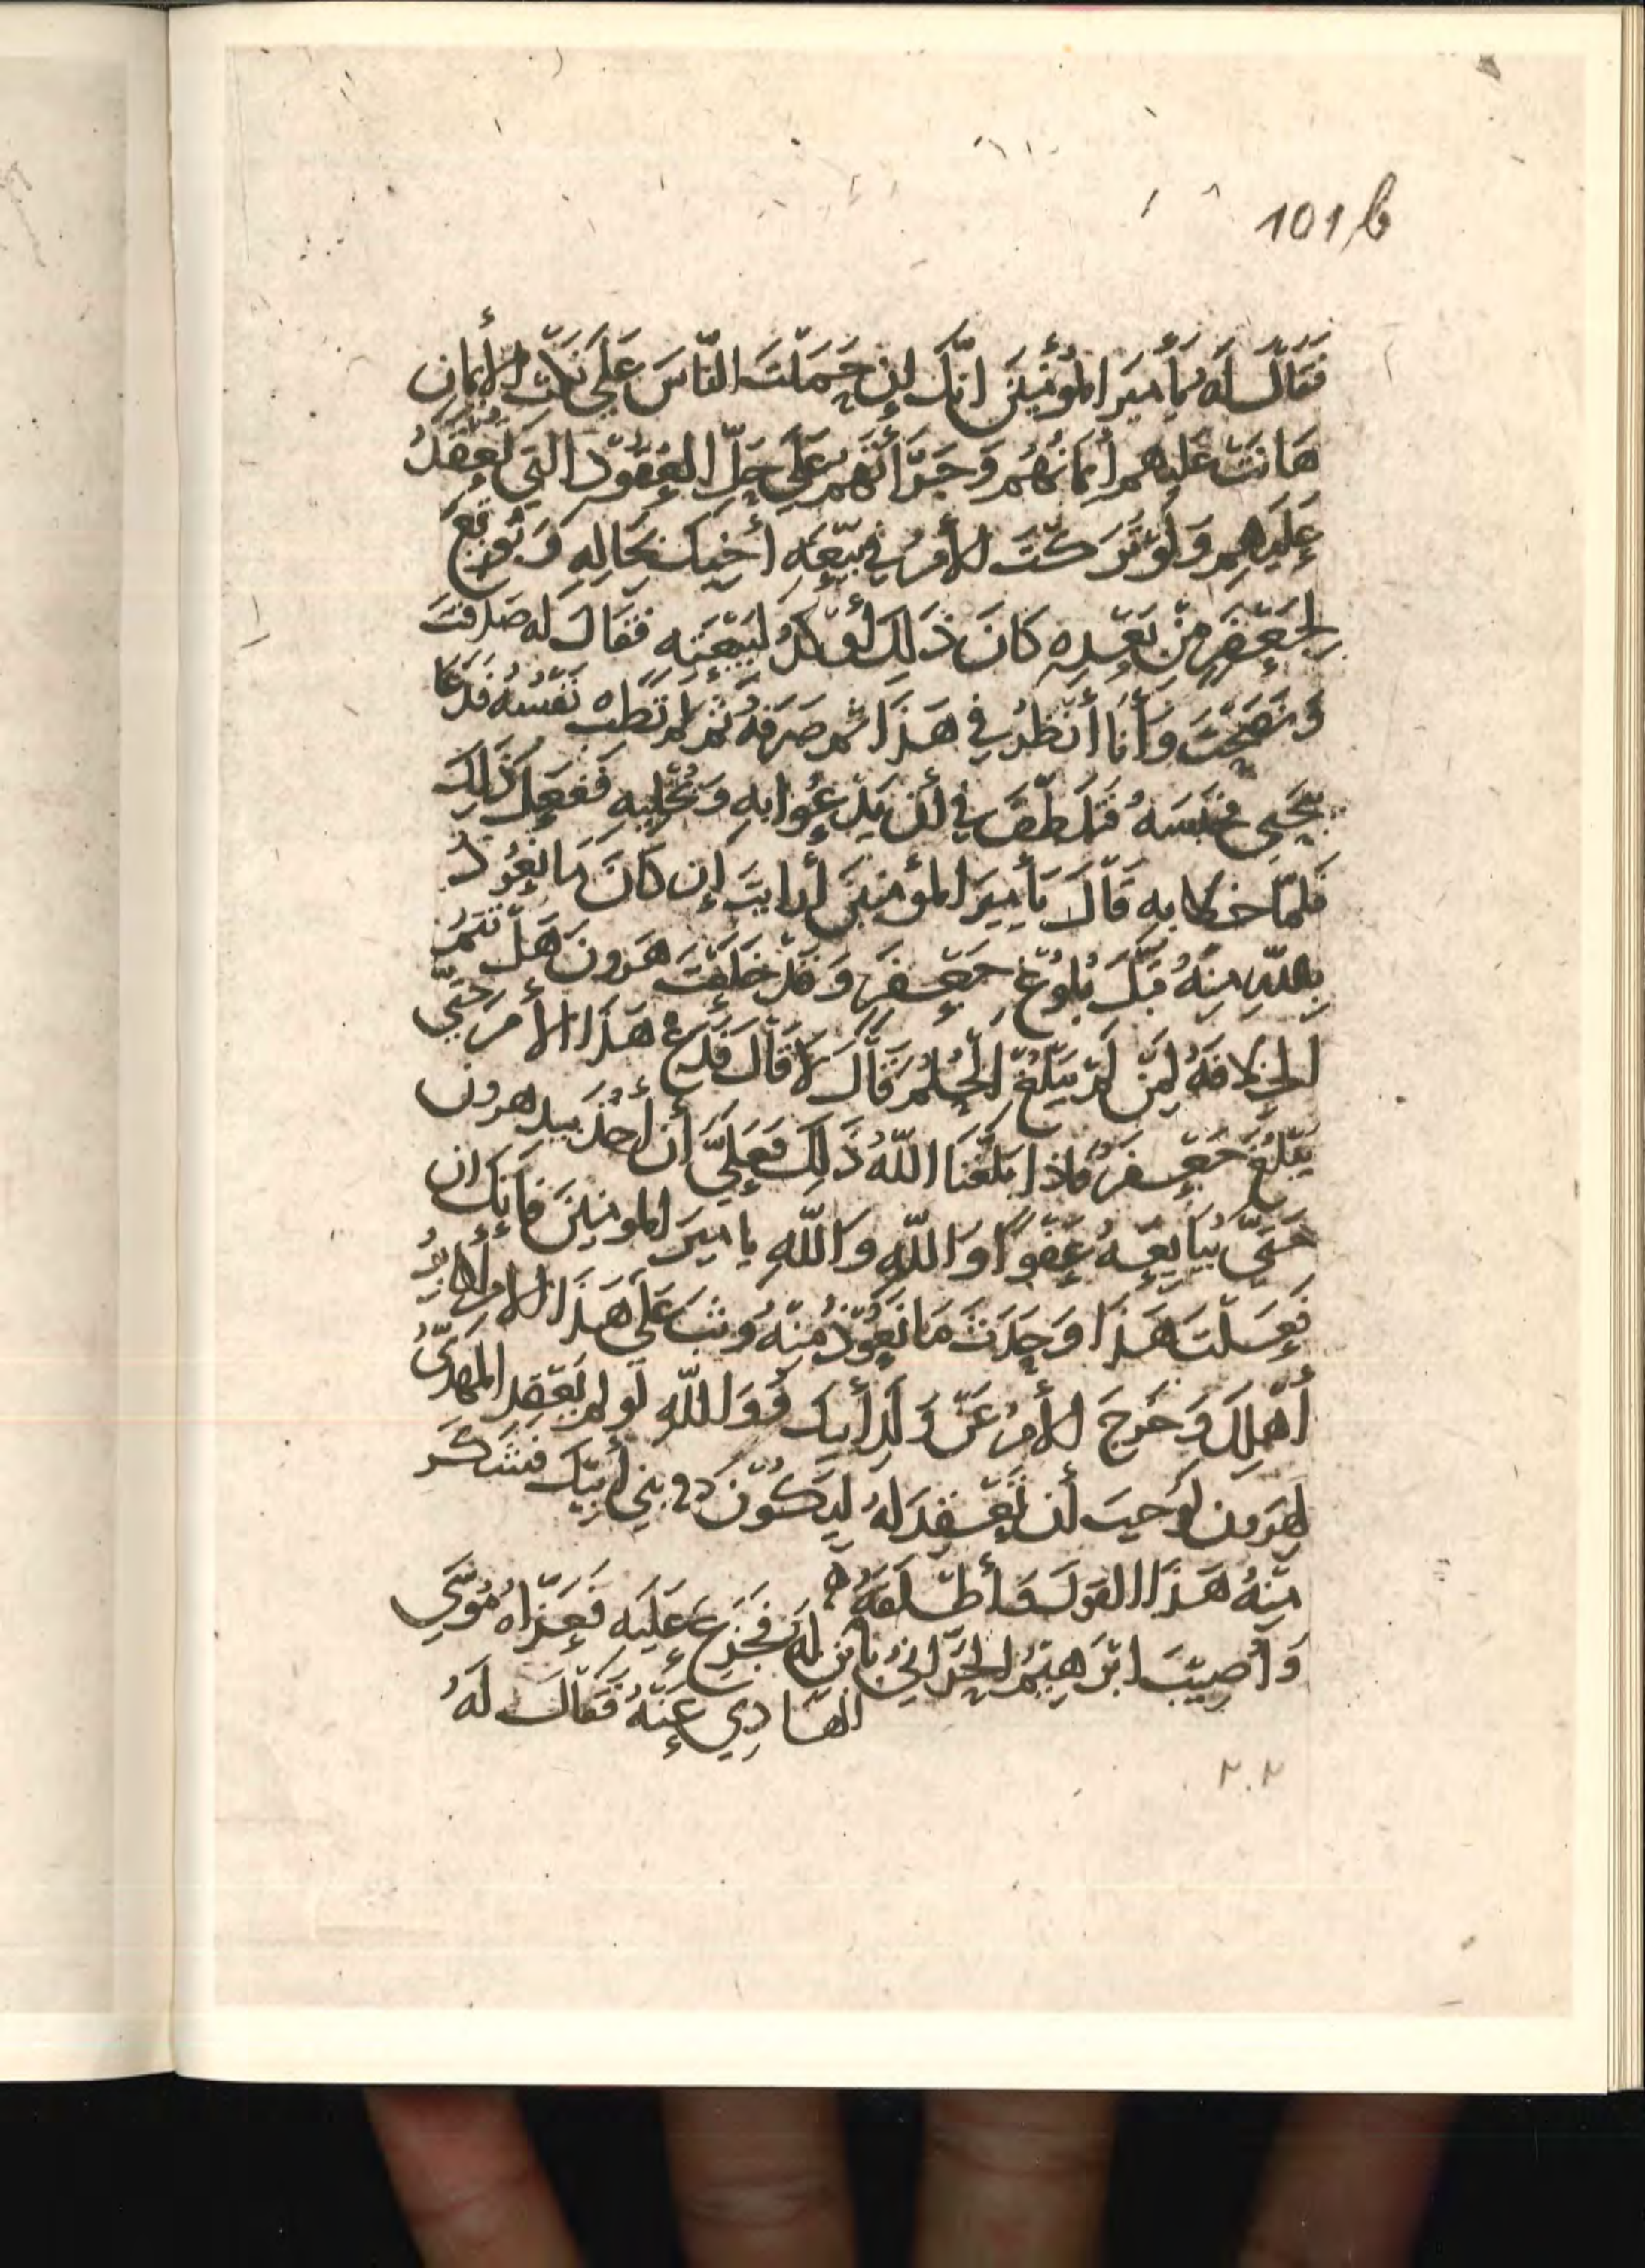 101b
فَقَالَ لَهُ يَا أَمِيرَ المُؤْمِنِينَ انَّكَ إِن حَمَلْتَ النَّاسَ عَلَى نَكْثِ الأَيْمَانِ
هَانَتْ عَلَيْهِمْ أَيْمَانُهُمْ وَجَرَّأْتَهُمْ عَلَى حَلِّ العُقُوْدِ الَّتِي تُعْقَدُ
عَلَيْهِمْ وَلَوْ تَرَكْتَ الأَمْرَ فِي بَيْعَةِ أَخِيكَ بِحَالِهِ وَبُوْيعَ
لِجَعْفَرٍ مِنْ بَعْدِهِ كَانَ ذَلِكَ أَوْكَدُ لِبَيْعَتِهِ فَقَالَ لَهُ صَدَقْتَ
وَنَصَحْتَ وَأَنَا أَنْظُرُ فِي هَذَا ثُمَّ صَرَفَهُ ثُمَّ لَمْ تَطِبْ نَفْسُهُ فَدَعَا
بِيَحْيَى فَحَبَسَهُ فَتَلَطَّفَ فِي أَنْ يَدْعُوا بِهِ وَيُخْلِيهِ فَفَعَلَ ذَلِكَ
فَلَمَّا خَلَا بِهِ قَالَ يَا أَمِيرَ المُؤْمِنِينَ أَرَايْتَ إِن كَانَ مَا نَعُوْذُ
بِاللَّهِ مِنْهُ قَبْلَ بُلُوْغِ جَعْفَرٍ وَقَدْ خَلَعْتَ هَرُونَ هَلْ تَتِمُّ
الخِلَافَةُ لِمَنْ لَمْ يَبْلُغِ الحُلُمَ قَالَ لَا قَالَ فَدَعْ هَذَا الأَمْرَ حَتَّى
يَبْلُغَ جَعْفَرُ فَاذَا بَلَّغَنَا اللَّهُ ذَلِكَ فَعَلَيَّ أَنْ أَخُذَ بِيَدِ هرون
حَتَّى يُبَايِعَهُ عَفْوًا وَاللَّهِ وَاللَّهِ يَا امِيرَ المومِنِينَ فَإِنَّكَ ان
فَعَلْتَ هَذَا وَحَدَثَ مَا نَعُوْذُ مِنْهُ وَثَبَ عَلَى هَذَا الامْرِ أَكَابِرُ
أَهْلِكَ وَخَرَجَ الأَمْرُ عَنْ وَلَدِ أَبِيكَ فَوَ اللَّهِ لَوْ لَمْ يَعْقِدِ المَهْدِيُّ
لِهَرُونَ لَوَجَبَ أَنْ تَعْقِدَ لَهُ لِيَكُوْنَ فِي بَنِي أَبِيْكَ فَشَكَرَ
مِنْهُ هَذَا القَوْلَ فَأَطْلَقَهُ ه
وَأُصِيْبَ ابْرَهِيْمُ الحَرَّانِيُّ بِابْنٍ لَهُ فَجَزِعَ عَلَيْهِ فَعَزَّاهُ مُوْسَى
الهَادِي عَنْهُ فَقَالَ لَهُ
٢٠٢